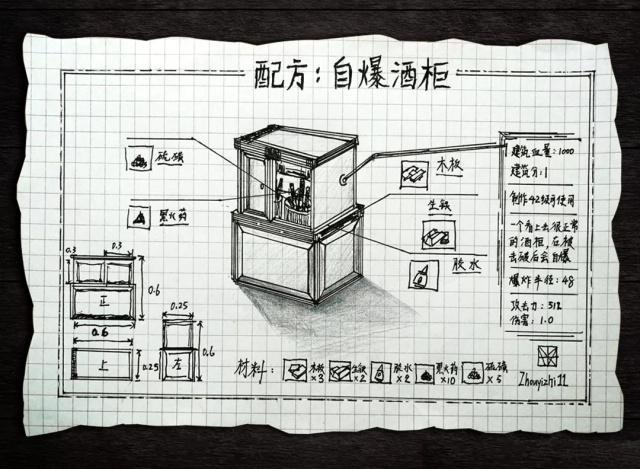 配方：自爆酒柜
硫磺
黑火药
木板
生铁
胶水
建筑血量：1000
建筑分：1
制作42级可使用
一个看上去很正常
的酒柜，在被
击破后会自爆
爆炸半径：48
攻击力：512
伤害：1.0
0.3
0.3
正
0.6
0.6
上
0.25
0.25
左
0.6
材料：
木板
×3
生铁
×2
胶水
×2
黑火药
×10
硫磺
×5
Zhouyizhi11